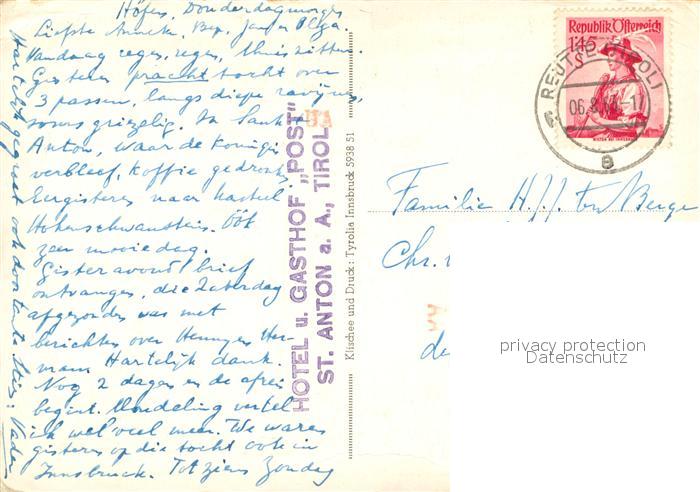 Höfen, Donderdagmorgen
Liefste Annek, Bep, Jan en Olga.
Vandaag regen, regen, thuis zitten.
Gisteren pracht tocht over
3 passen, langs diepe ravijnen,
soms griezelig. In Sankt
Anton, waar de koningin
verbleef, koffie gedronken
Eergisteren naar kasteel
Hohenschwanstein. Ook
zeer mooie dag.
Gisteravond brief
ontvangen, die Zaterdag
afgezonden was met
berichten over Hennys Her-
man Hartelijk dank.
Nog 2 dagen en de afreis
begint. Mondeling vertel
ik wel veel meer. We waren
gisteren op die tocht ook in
Innsbruck. Tot ziens Zondag
Hartelijk gegroet ook door tante Stien: Vader
HOTEL u. GASTHOF „POST"
ST. ANTON a. A., TIROL
Klischee und Druck: Tyrolia Innsbruck S938 51
Republik Österreich
1.45
S
REUTTE (TIROL)
06.8.
-17
a
Familie H.J. ten Berge
Chr.
de
privacy protection
Datenschutz